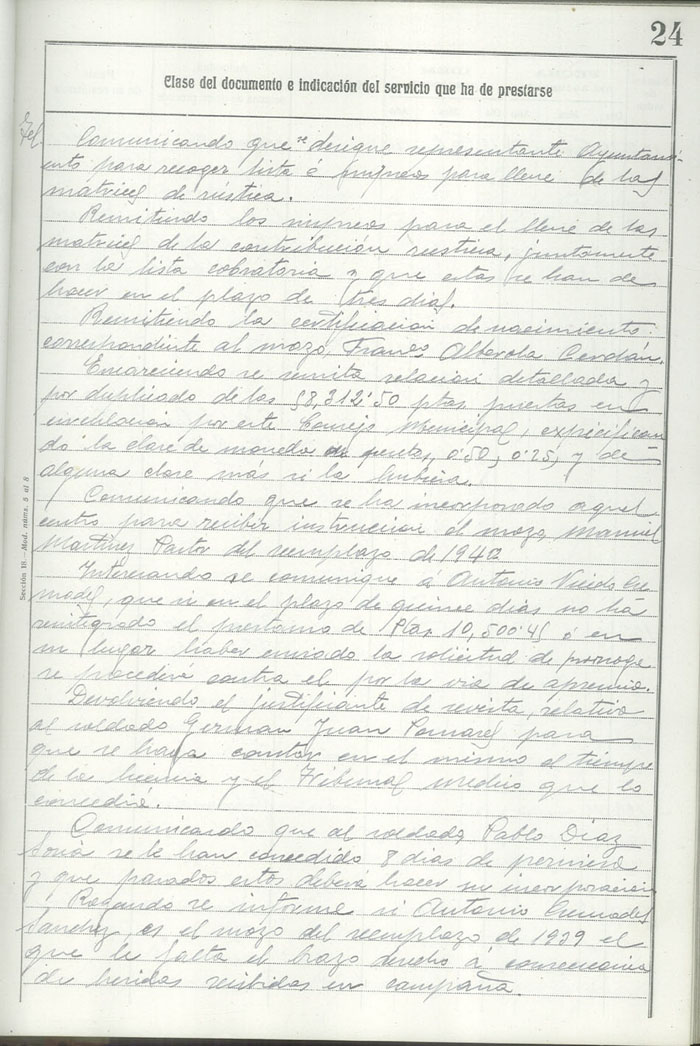 24
Clase del documento e indicación del servicio que ha de prestarse
Comunicando que se designe representante Ayuntami-
ento para recoger lista é impresos para llenar de las
matrices de rústica.
Remitiendo los impresos para el llene de las
matrices de la contribución rustica, juntamente
con la lista cobratoria y que estas se han de
hacer en el plazo de tres dias.
Remitiendo la certificacion de nacimiento
correspondiente al mozo, Franco Alberola Cerdán.
Encareciendo se remita relacion detallada y
por duplicado de las 98,312'50 ptas puestas en
circulacion por este Consejo Municipal, expecifican
do la clase de moneda de peseta, 0'50, 0'25, y de
alguna clase más si la hubiera.
Comunicando que se ha incorporado aquel
centro para recibir instruccion el mozo Manuel
Martinez Pastor del reemplazo de 1940
Interesando se comunique á Antonio
que si en el plazo de quince dias no ha
reintegrado el prestamo de Ptas 10,500'45 ó en
su lugar haber enviado la solicitud de prorroga
se procederá contra el por la via de apremio.
Devolviendo el justificante de revista, relativo
al soldado German Juan Pomares para
que se haga constar en el mismo el tiempo
de la licencia y el Tribunal medico que lo
concedió.
Comunicando que al soldado, Pablo Diaz
Soria se le han concedido 8 dias de permiso
y que pasados estos deberá hacer su incorporacion
Rogando se informe si Antonio Gremades
Sanchez, es el mozo del reemplazo de 1939 el
que le falta el brazo derecho á consecuencia
de heridas recibidas en campaña.
Sección 18.—Mod. núms. 5 al 8